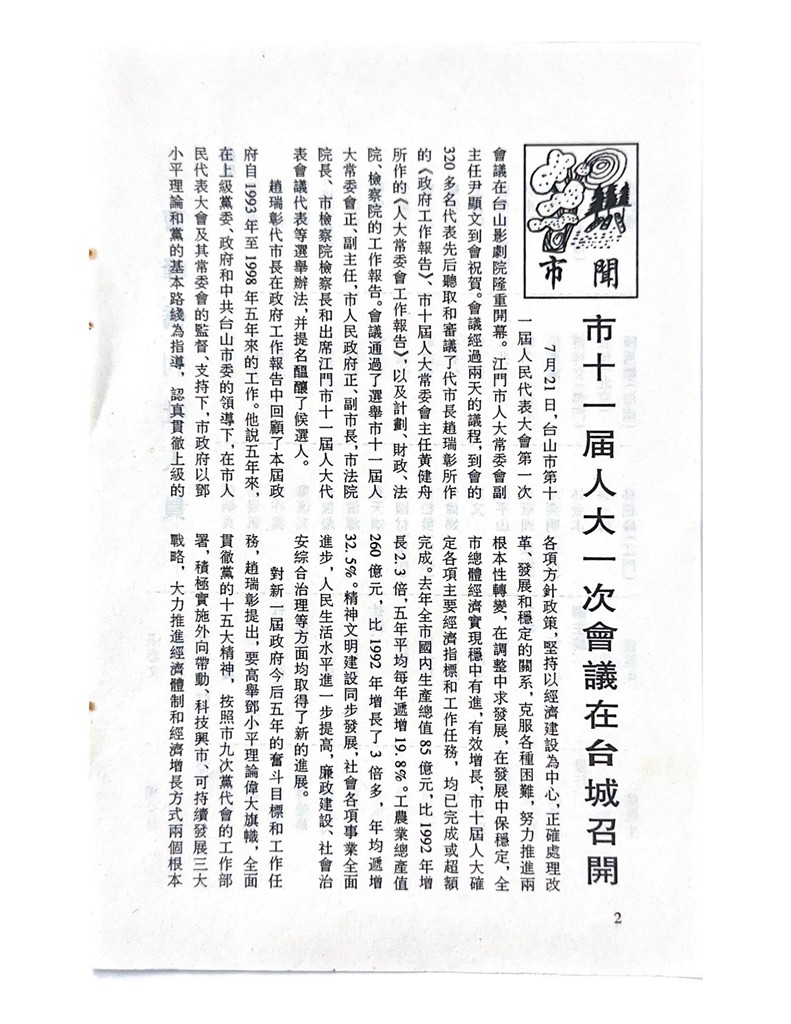 市聞
市十一届人大一次會議在台城召開
7月21日，台山市第十
一屆人民代表大會第一次
會議在台山影劇院隆重開幕。江門市人大常委會副
主任尹顯文到會祝賀。會議經過兩天的議程，到會的
320多名代表先后聽取和審議了代市長趙瑞彰所作
的《政府工作報告》、市十屆人大常委會主任黃健舟
所作的《人大常委會工作報告》，以及計劃、財政、法
院、檢察院的工作報告。會議通過了選舉市十一屆人
大常委會正、副主任，市人民政府正、副市長，市法院
院長、市檢察院檢察長和出席江門市十一屆人大代
表會議代表等選舉辦法，并提名醞釀了候選人。
趙瑞彰代市長在政府工作報告中回顧了本屆政
府自1993年至1998年五年來的工作。他說五年來，
在上級黨委、政府和中共台山市委的領導下，在市人
民代表大會及其常委會的監督、支持下，市政府以鄧
小平理論和黨的基本路綫為指導，認真貫徹上級的
各項方針政策，堅持以經濟建設為中心，正確處理改
革、發展和穩定的關系，克服各種困難，努力推進兩
根本性轉變，在調整中求發展，在發展中保穩定，全
市總體經濟實現穩中有進，有效增長，市十屆人大確
定各項主要經濟指標和工作任務，均已完成或超額
完成。去年全市國內生產總值85億元，比1992年增
長2.3倍，五年平均每年遞增19.8%。工農業總產值
260億元，比1992年增長了3倍多，年均遞增
32.5%。精神文明建設同步發展，社會各項事業全面
進步，人民生活水平進一步提高，廉政建設、社會治
安綜合治理等方面均取得了新的進展。
對新一屆政府今后五年的奮斗目標和工作任
務，趙瑞彰提出，要高舉鄧小平理論偉大旗幟，全面
貫徹黨的十五大精神，按照市九次黨代會的工作部
署，積極實施外向帶動、科技興市、可持續發展三大
戰略，大力推進經濟體制和經濟增長方式兩個根本
2